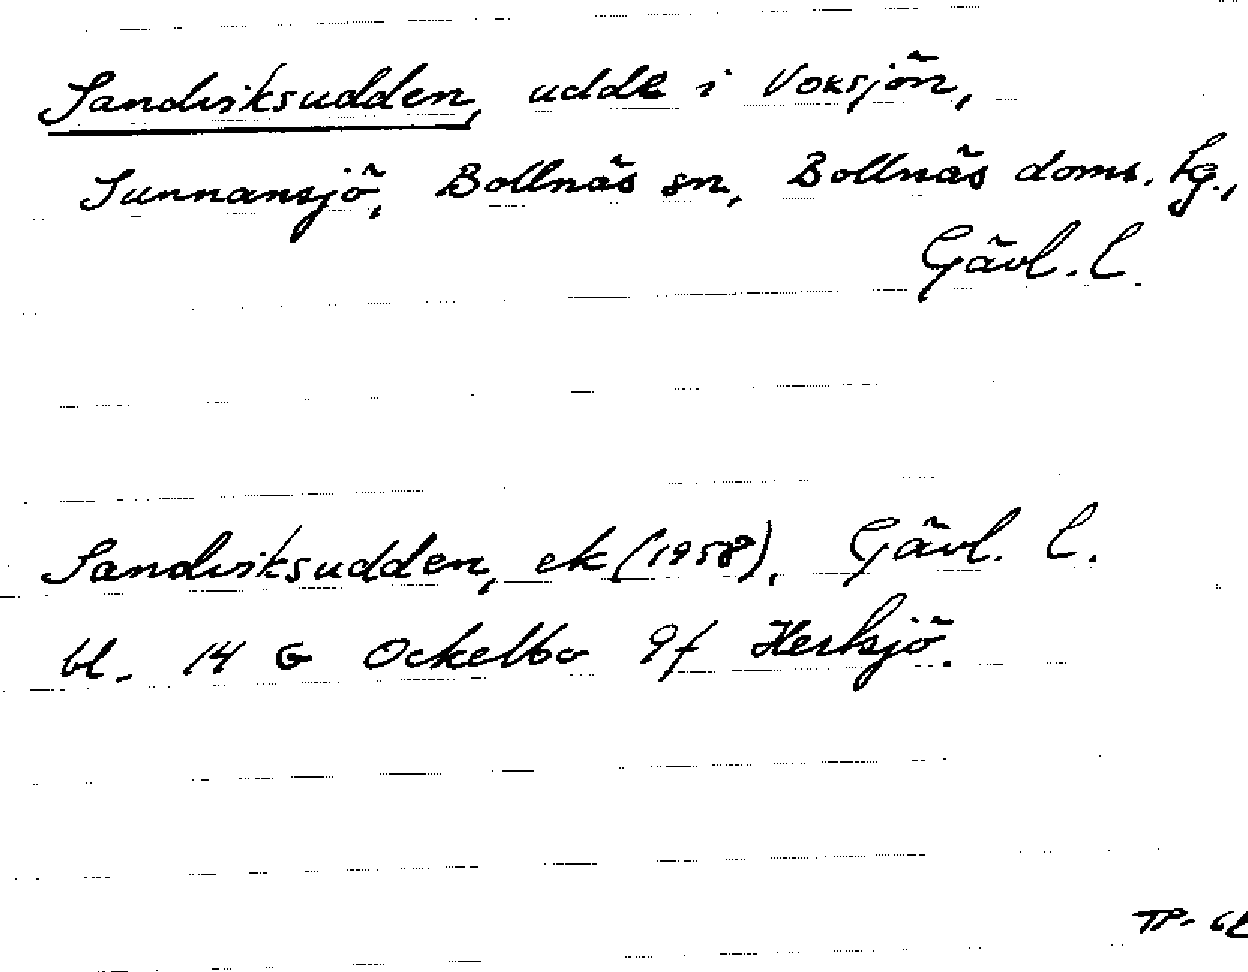 Sandviksudden, udde i Voxsjön,
Sunnansjö, Bollnäs sn, Bollnäs doms. tg.,
Gävl. l.
Sandviksudden, ek (1958), Gävl. l.
bl. 14 G Ockelbo 9f Herksjö.